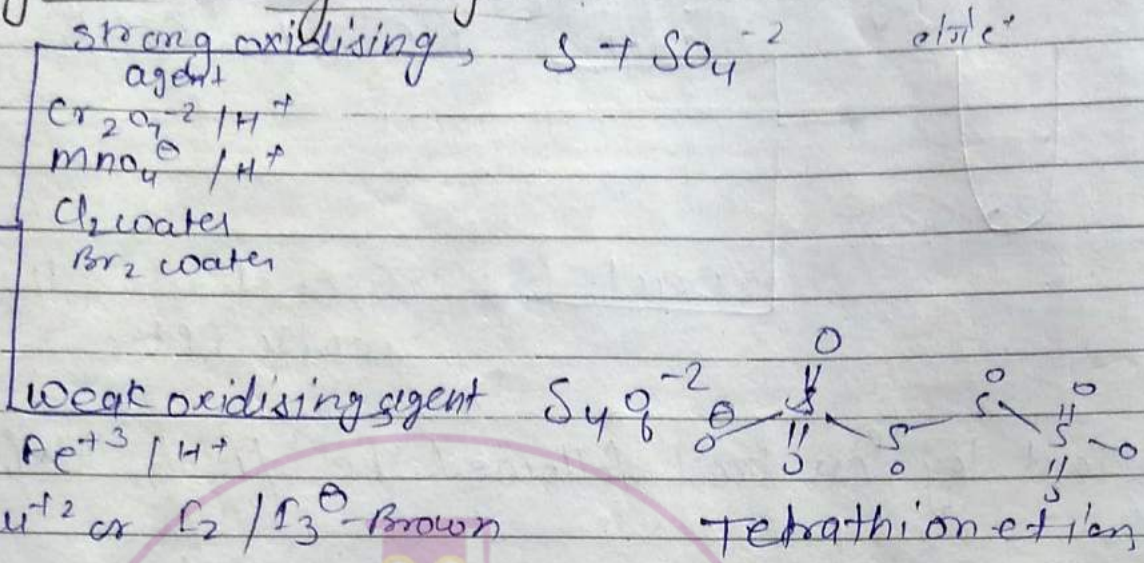 strong oxidising, S + SO₄⁻²
agent
Cr₂O₇⁻² / H⁺
MnO₄⊖ / H⁺
Cl₂ water
Br₂ water
O
weak oxidising agent S₄O₆⁻² ⊖O S S S S O O
O O O O
Fe⁺³ / H⁺
u⁺² or I₂ / I₃⊖ Brown Tetrathionet ion